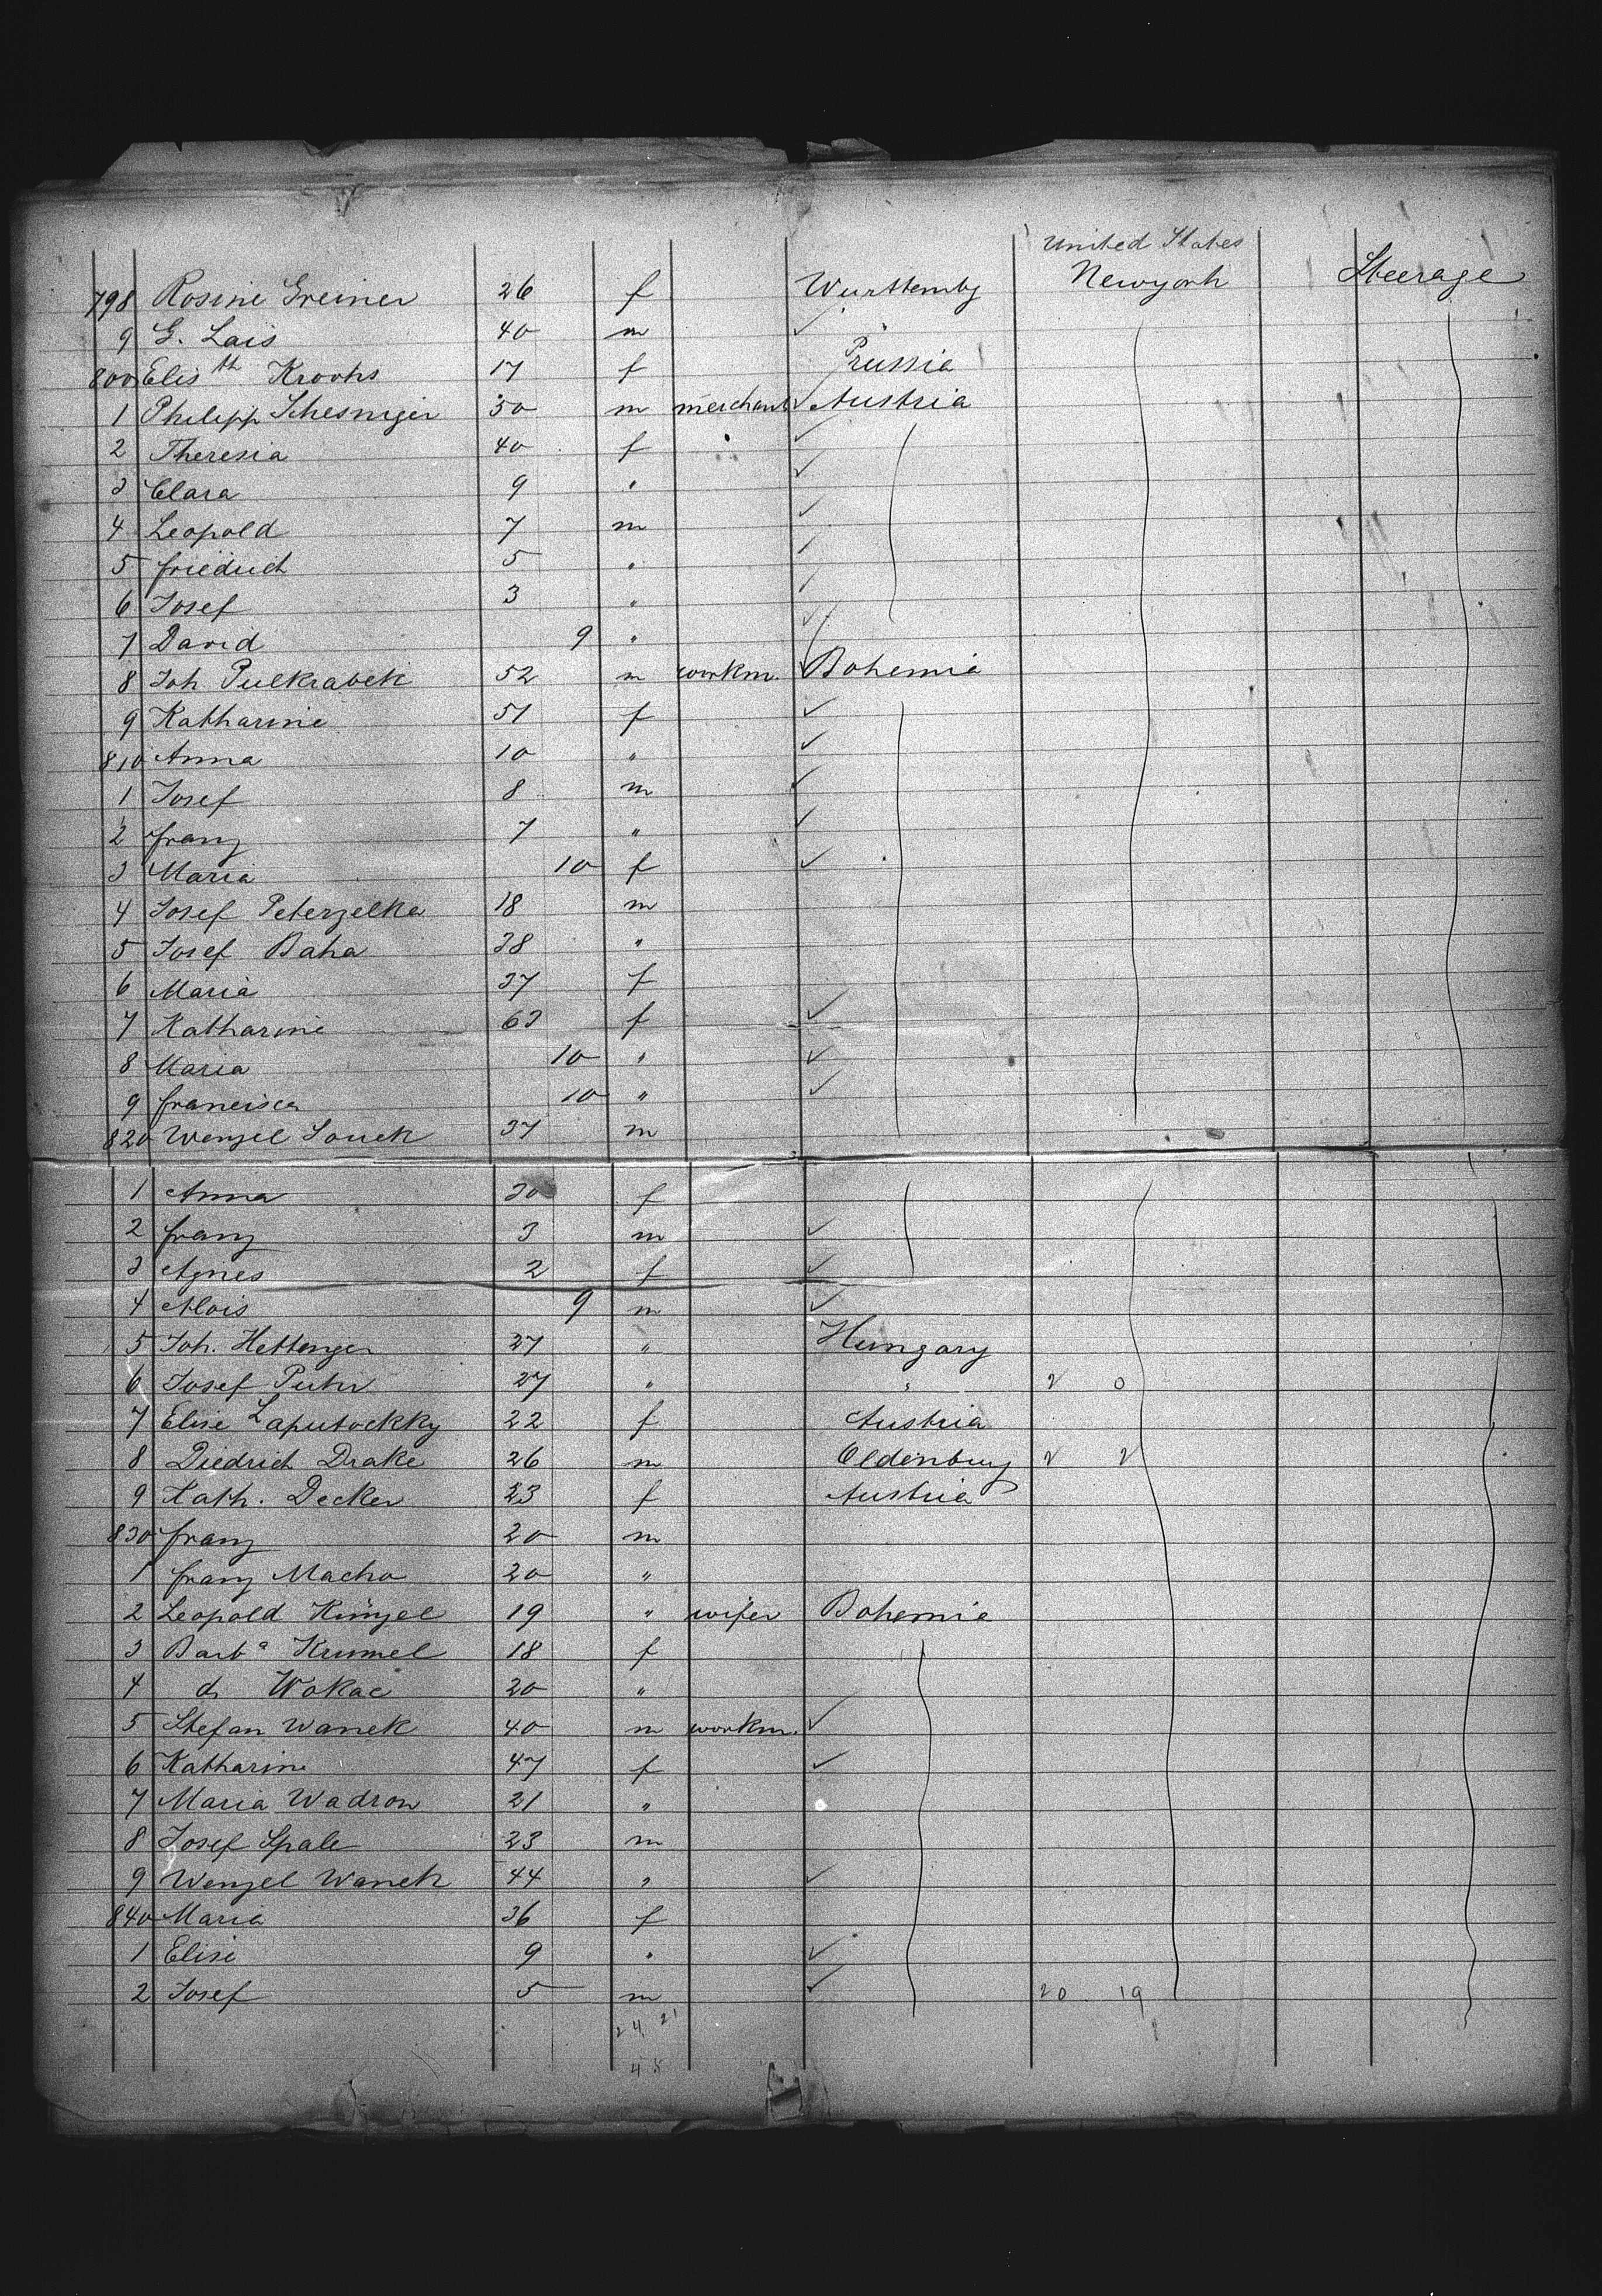 United States
798 Rosine Greiner 26 f Wurttembg Newyork Steerage
9 G. Lais 40 m
800 Elis th Kroohs 17 f Prussia
1 Philipp 50 m merchant Austria
2 Theresia 40 f "
3 Clara 9 "
4 Leopold 7 m
5 friedrich 5 "
6 Josef 3 "
7 David 9 "
8 Joh Pulkrabek 52 m workm. Bohemia
9 Katharine 51 f
810 Anna 10 "
1 Josef 8 m
2 franz 7 "
3 Maria 10 f
4 Josef Peterzelka 18 m
5 Josef Baha 38 "
6 Maria 37 f
7 Katharine 63 f
8 Maria 10 "
9 francisca 10 "
820 Wenzel Souck 37 m
1 Anna 30 f
2 franz 3 m
3 Agnes 2 f
4 Alois 9 m
5 Joh. Hettenger 27 " Hungary
6 Josef 27 " " 2 0
7 Elise Laputockky 22 f Austria
8 Diedrich Drake 26 m Oldenburg 2 2
9 Kath. Decker 23 f Austria
830 franz 20 m
1 franz Macho 20 "
2 Leopold Künzel 19 " Bohemia
3 Barba Krumel 18 f
4 do Wokac 20 "
5 Stefan Wanek 40 m workm.
6 Katharine 47 f
7 Maria Wadron 21 "
8 Josef Spale 23 m
9 Wenzel Wanek 44 "
840 Maria 36 f
1 Elise 9 "
2 Josef 5 m 20 19
24 21
45